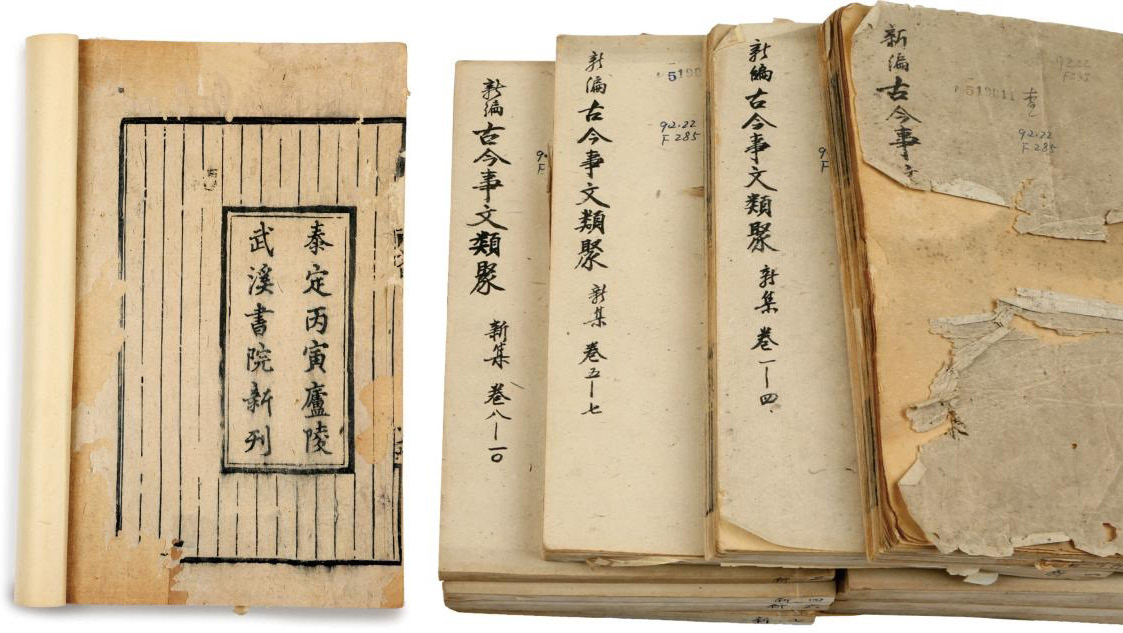 泰定丙寅廬陵
武溪書院新刊
新编古今事文類聚 新集 卷八—一〇
新编古今事文類聚 新集 卷五—七
5190
92.22
F 285
新编古今事文類聚 新集 卷一—四
新编古今事文
519011
92.22
F 285